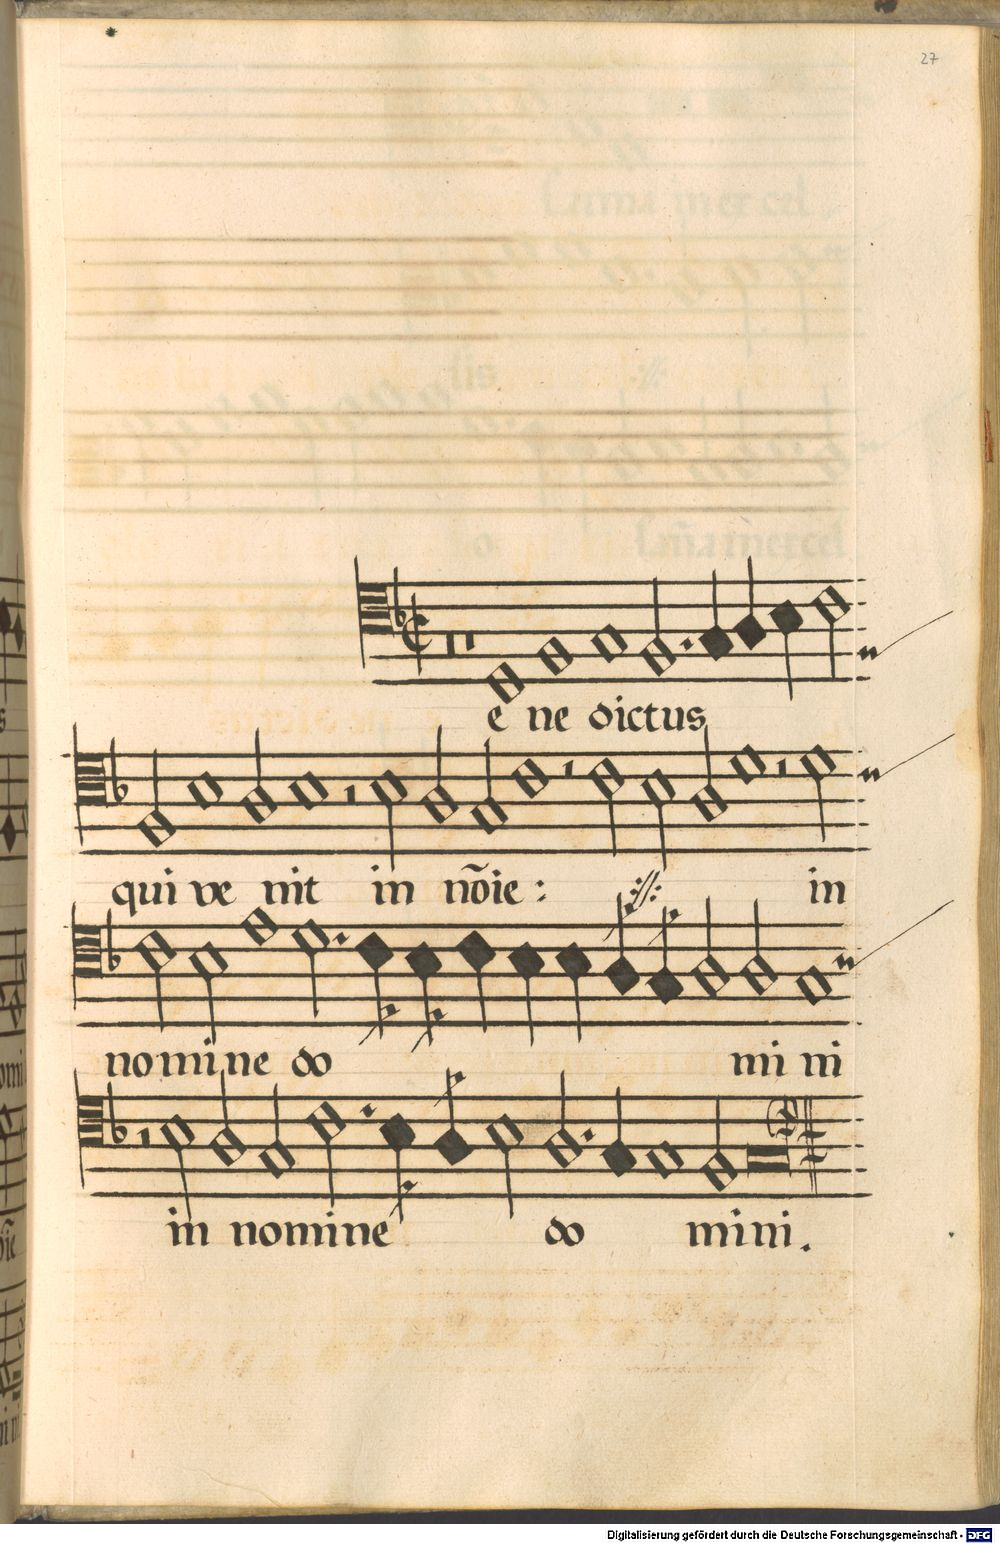 27
e ne dictus
qui ve nit in nõie : ://: in
nomine do mi ni
in nomine do mini.
Digitalisierung gefördert durch die Deutsche Forschungsgemeinschaft - DFG